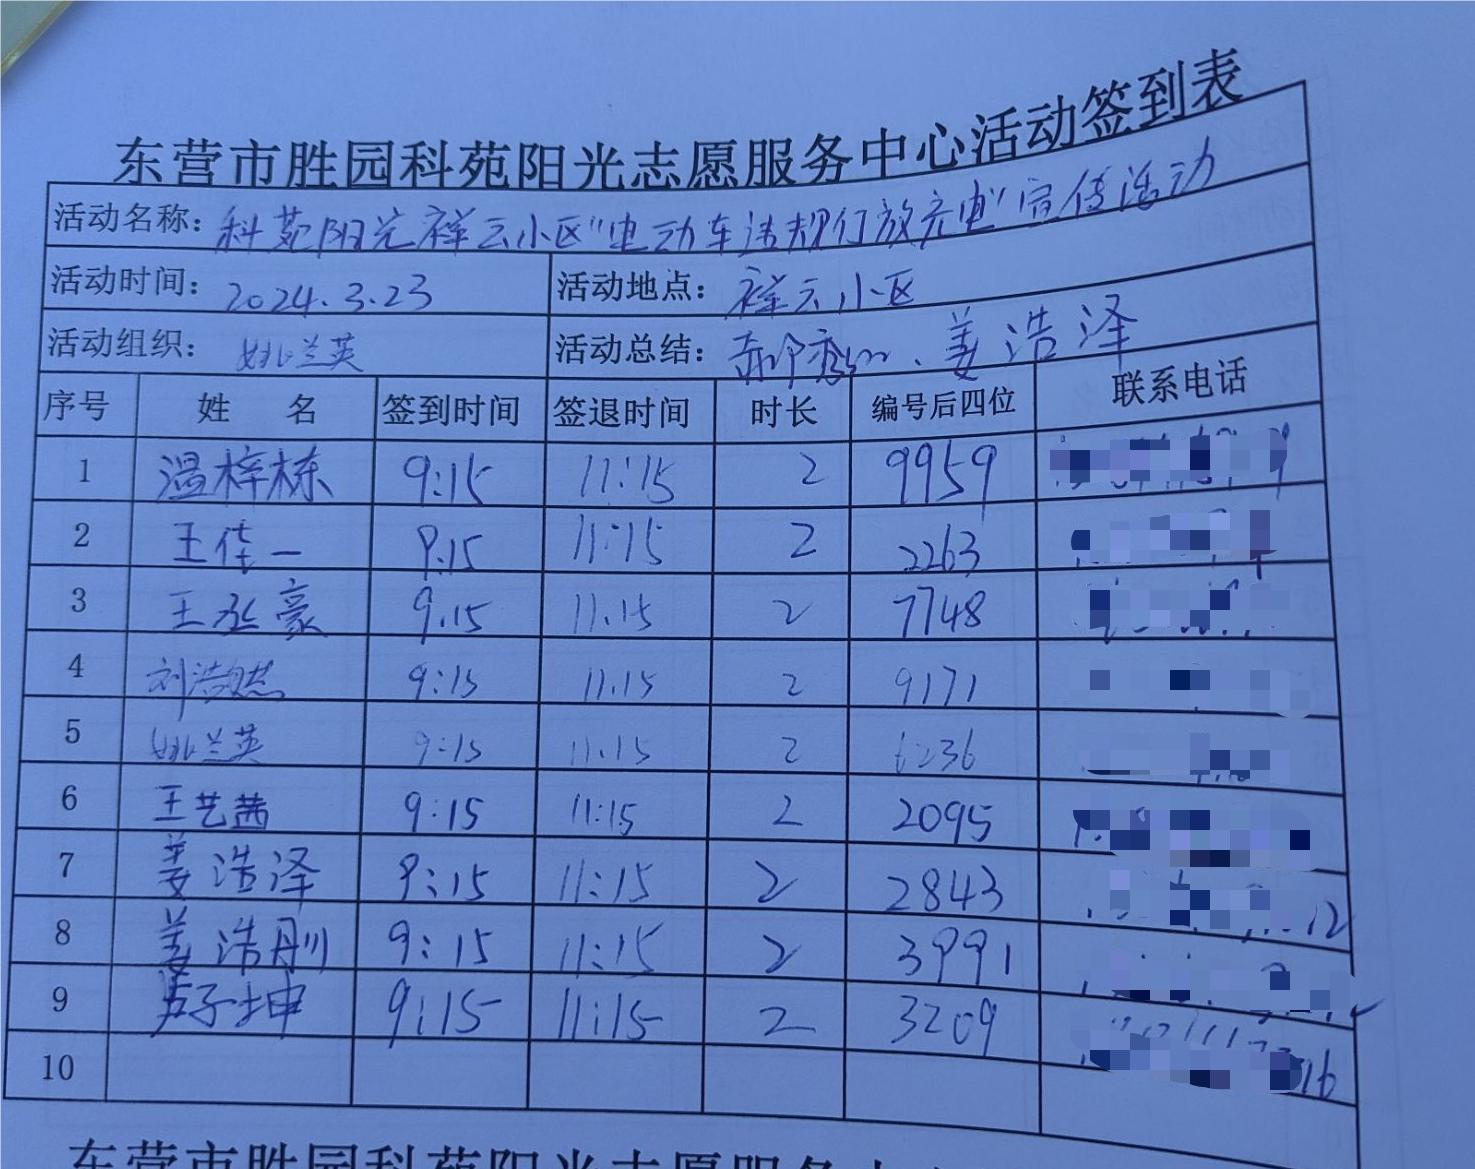 东营市胜园科苑阳光志愿服务中心活动签到表
活动名称: 科苑阳光祥云小区"电动车违规停放充电"宣传活动
活动时间: 2024.3.23 活动地点: 祥云小区
活动组织: 姚兰英 活动总结: 姜浩泽
序号 姓 名 签到时间 签退时间 时长 编号后四位 联系电话
1 温梓栋 9:15 11:15 2 9959
2 王佳一 9.15 11:15 2 2263
3 王丞豪 9.15 11.15 2 7748
4 刘浩然 9:15 11.15 2 9171
5 姚兰英 9:15 11.15 2 6236
6 王艺茜 9:15 11:15 2 2095
7 姜浩泽 9:15 11:15 2 2843
8 姜浩刚 9:15 11:15 2 3991
9 卢子坤 9:15 11:15 2 3209
10
东营市胜园科苑阳光志愿服务中